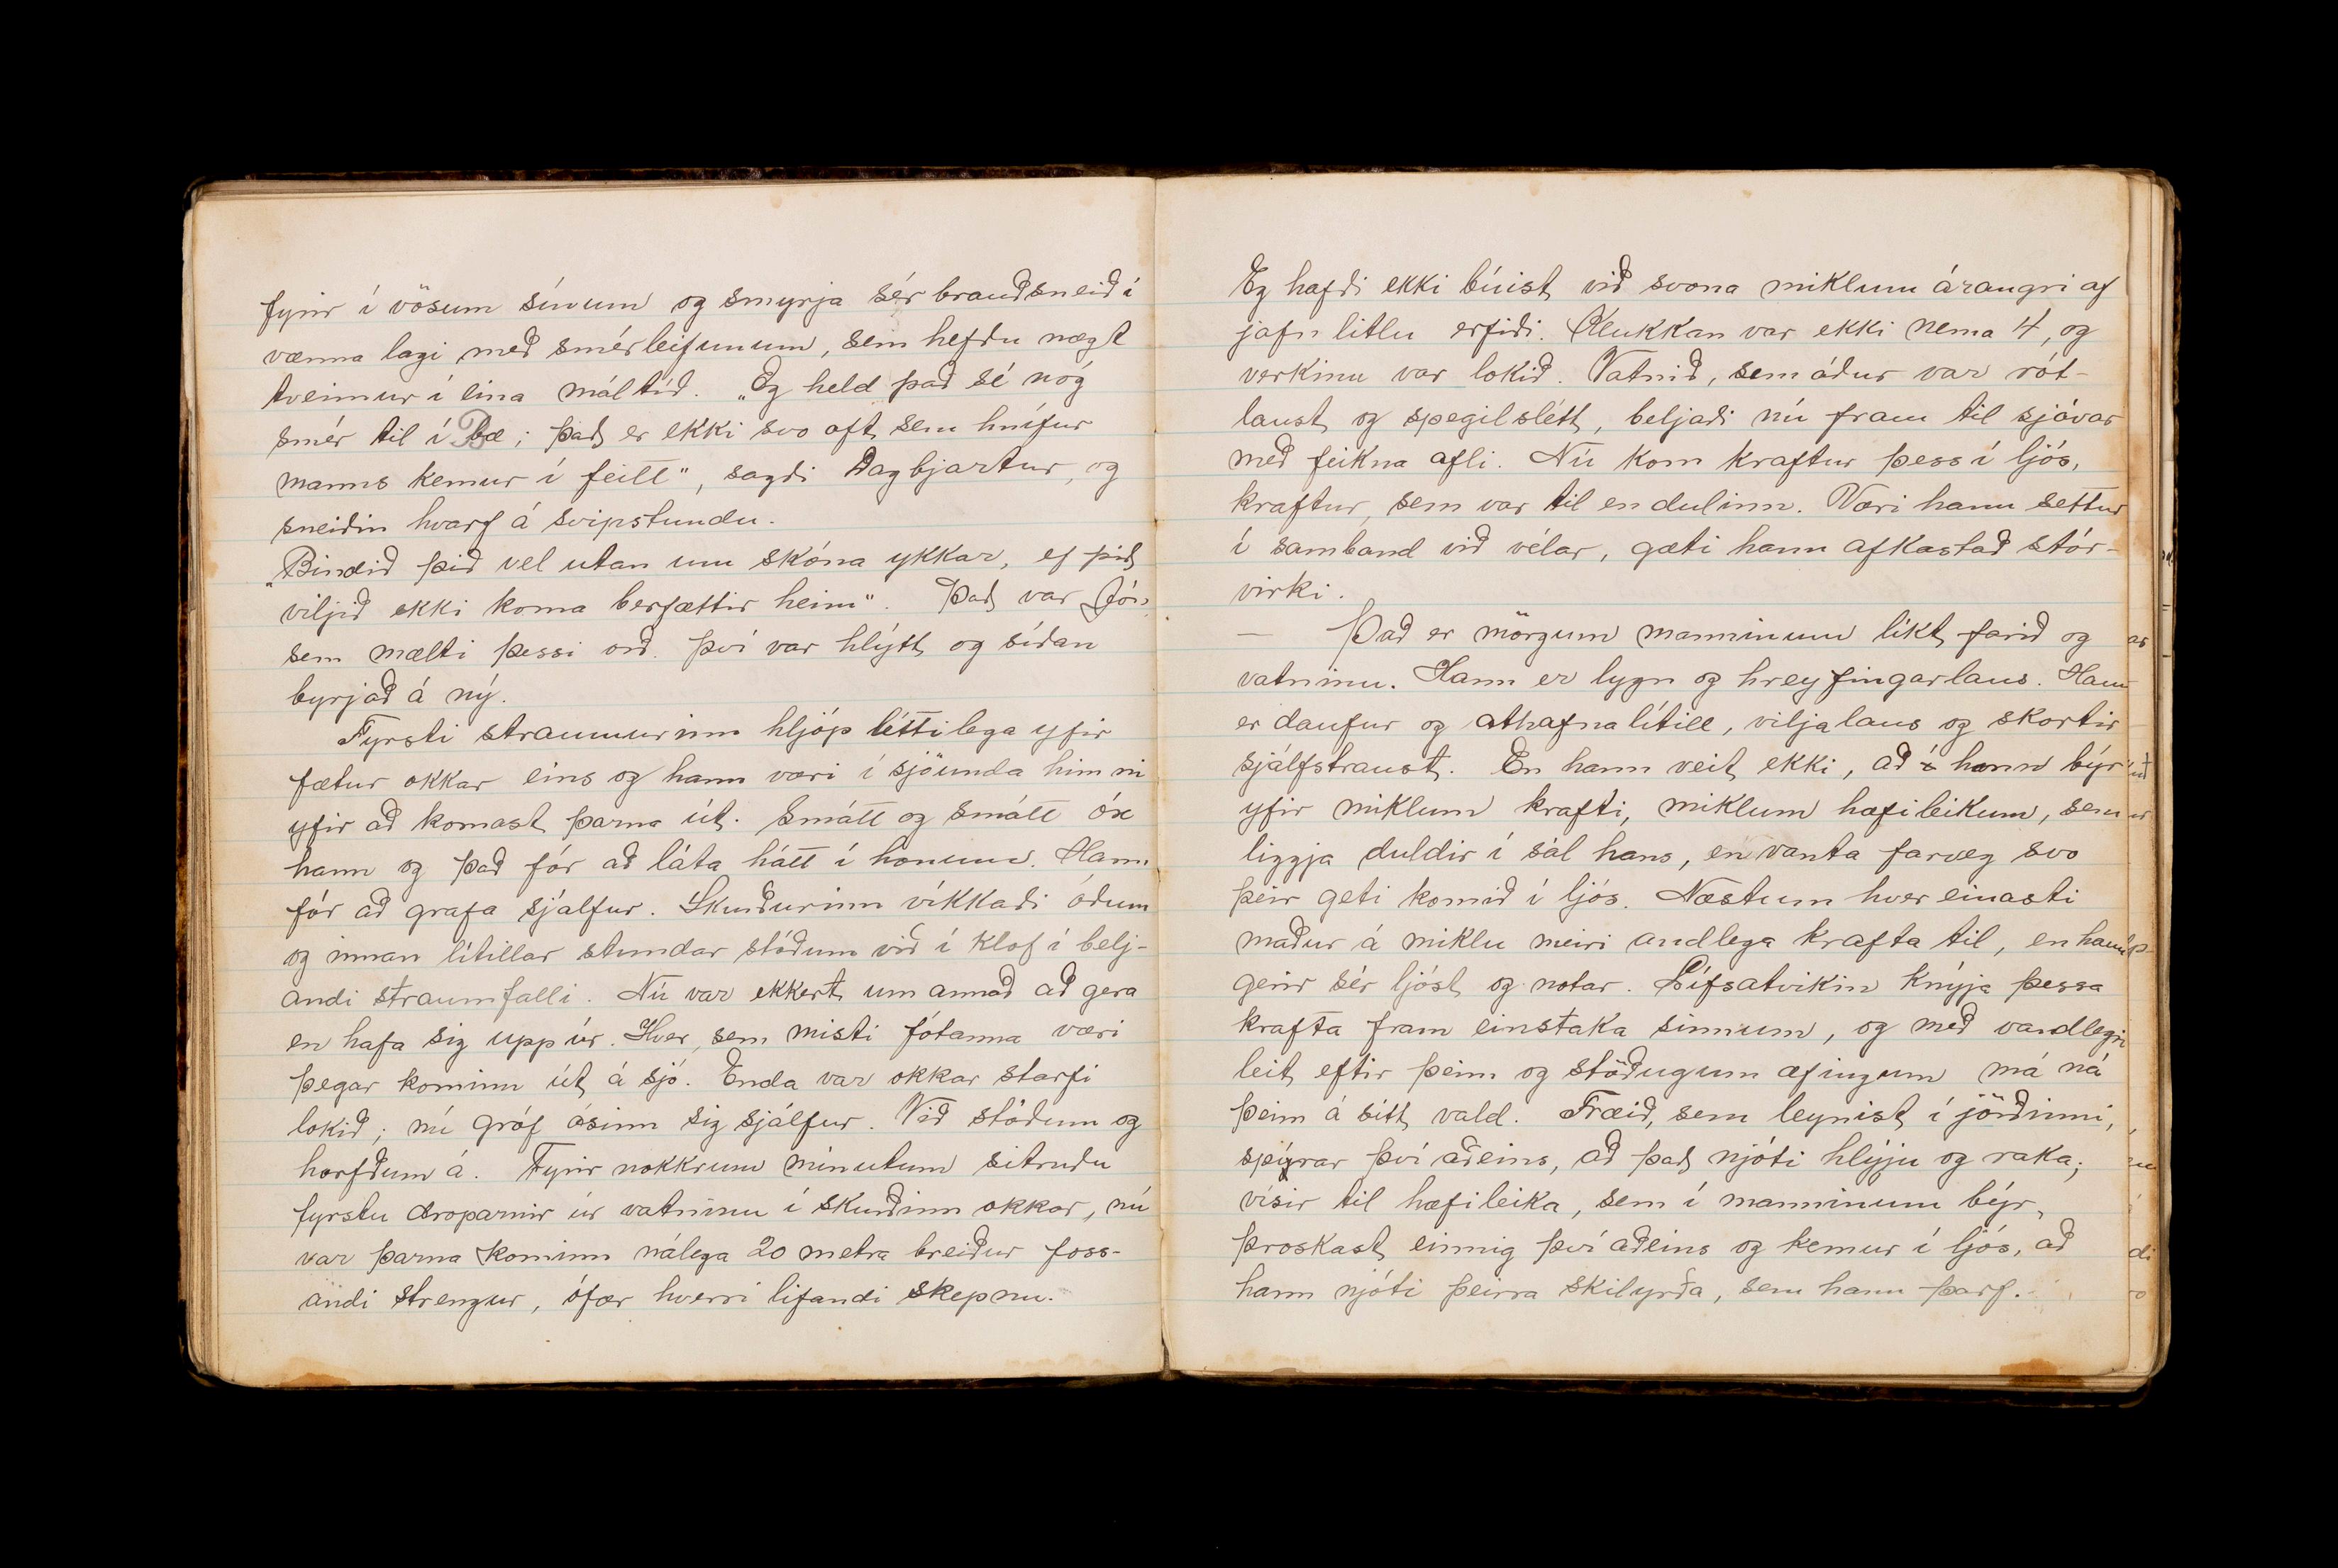 fyrir í vösum sínum og smyrja sér brauðsneið í
vænna lagi með smérleifunum, sem hefðu nægt
tveimur í eina máltíð. „Eg held það sé nóg
smér til í Bæ; það er ekki svo oft sem hnífur
manns kemur í feitt", sagði Dagbjartur, og
sneiðin hvarf á svipstundu.
„Bindið þið vel utan um skóna ykkar, ef þið
viljið ekki koma berfættir heim". Það var Jón,
sem mælti þessi orð. Því var hlýtt og síðan
byrjað á ný.
Fyrsti straumurinn hljóp léttilega yfir
fætur okkar eins og hann væri í sjöunda himni
yfir að komast þarna út. Smátt og smátt óx
hann og það fór að láta hátt í honum. Hann
fór að grafa sjálfur. Skurðurinn víkkaði óðum
og innan lítillar stundar stóðum við í klof í belj-
andi straumfalli. Nú var ekkert um annað að gera
en hafa sig upp úr. Hver, sem misti fótanna væri
þegar kominn út á sjó. Enda var okkar starfi
lokið; nú gróf ósinn sig sjálfur. Við stóðum og
horfðum á. Fyrir nokkrum mínutum sitruðu
fyrstu droparnir úr vatninu í skurðinn okkar, nú
var þarna kominn nálega 20 metra breiður foss-
andi strengur, ófær hverri lifandi skepnu.
Eg hafði ekki búist við svona miklum árangri af
jafn litlu erfiði. Klukkan var ekki nema 4, og
verkinu var lokið. Vatnið, sem áður var rót-
laust og spegilslétt, beljaði nú fram til sjávar
með feikna afli. Nú kom kraftur þess í ljós,
kraftur, sem var til en dulinn. Væri hann settur
í samband við vélar, gæti hann afkastað stór-
virki.
— Það er mörgum manninum líkt farið og
vatninu. Hann er lygn og hreyfingarlaus. Hann
er daufur og athafnalítill, viljalaus og skortir
sjálfstraust. En hann veit ekki, að hann býr
yfir miklum krafti, miklum hæfileikum, sem
liggja duldir í sál hans, en vanta farveg svo
þeir geti komið í ljós. Næstum hver einasti
maður á miklu meiri andlega krafta til, en hann
gerir sér ljóst og notar. Lífsatvikin knýja þessa
krafta fram einstaka sinnum, og með vandlegri
leit eftir þeim og stöðugum æfingum má ná
þeim á sitt vald. Fræið, sem leynist í jörðinni,
spírar því aðeins, að það njóti hlýju og raka;
vísir til hæfileika, sem í manninum býr,
þroskast einnig því aðeins og kemur í ljós, að
hann njóti þeirra skilyrða, sem hann þarf.